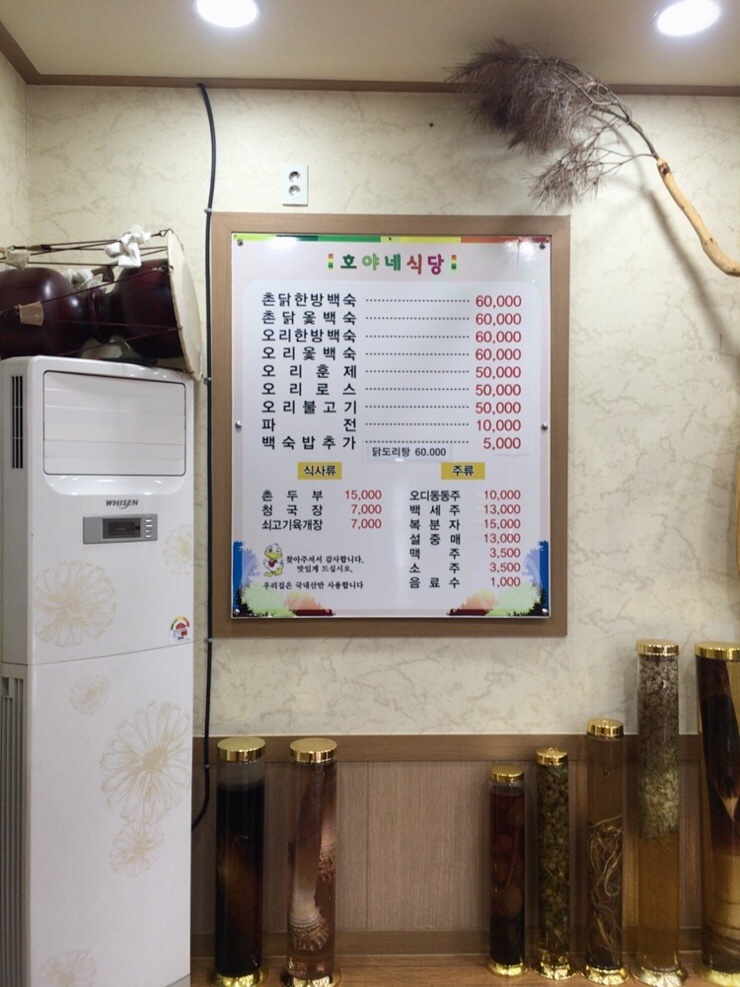 호야네식당
촌닭한방백숙 60,000
촌닭옻백숙 60,000
오리한방백숙 60,000
오리옻백숙 60,000
오리훈제 50,000
오리로스 50,000
오리불고기 50,000
파전 10,000
백숙밥추가 5,000
닭도리탕 60.000
식사류
촌두부 15,000
청국장 7,000
쇠고기육개장 7,000
찾아주셔서 감사합니다.
맛있게 드십시오.
우리집은 국내산만 사용합니다
주류
오디동동주 10,000
백세주 13,000
복분자 15,000
설중매 13,000
맥주 3,500
소주 3,500
음료수 1,000
WHISEN